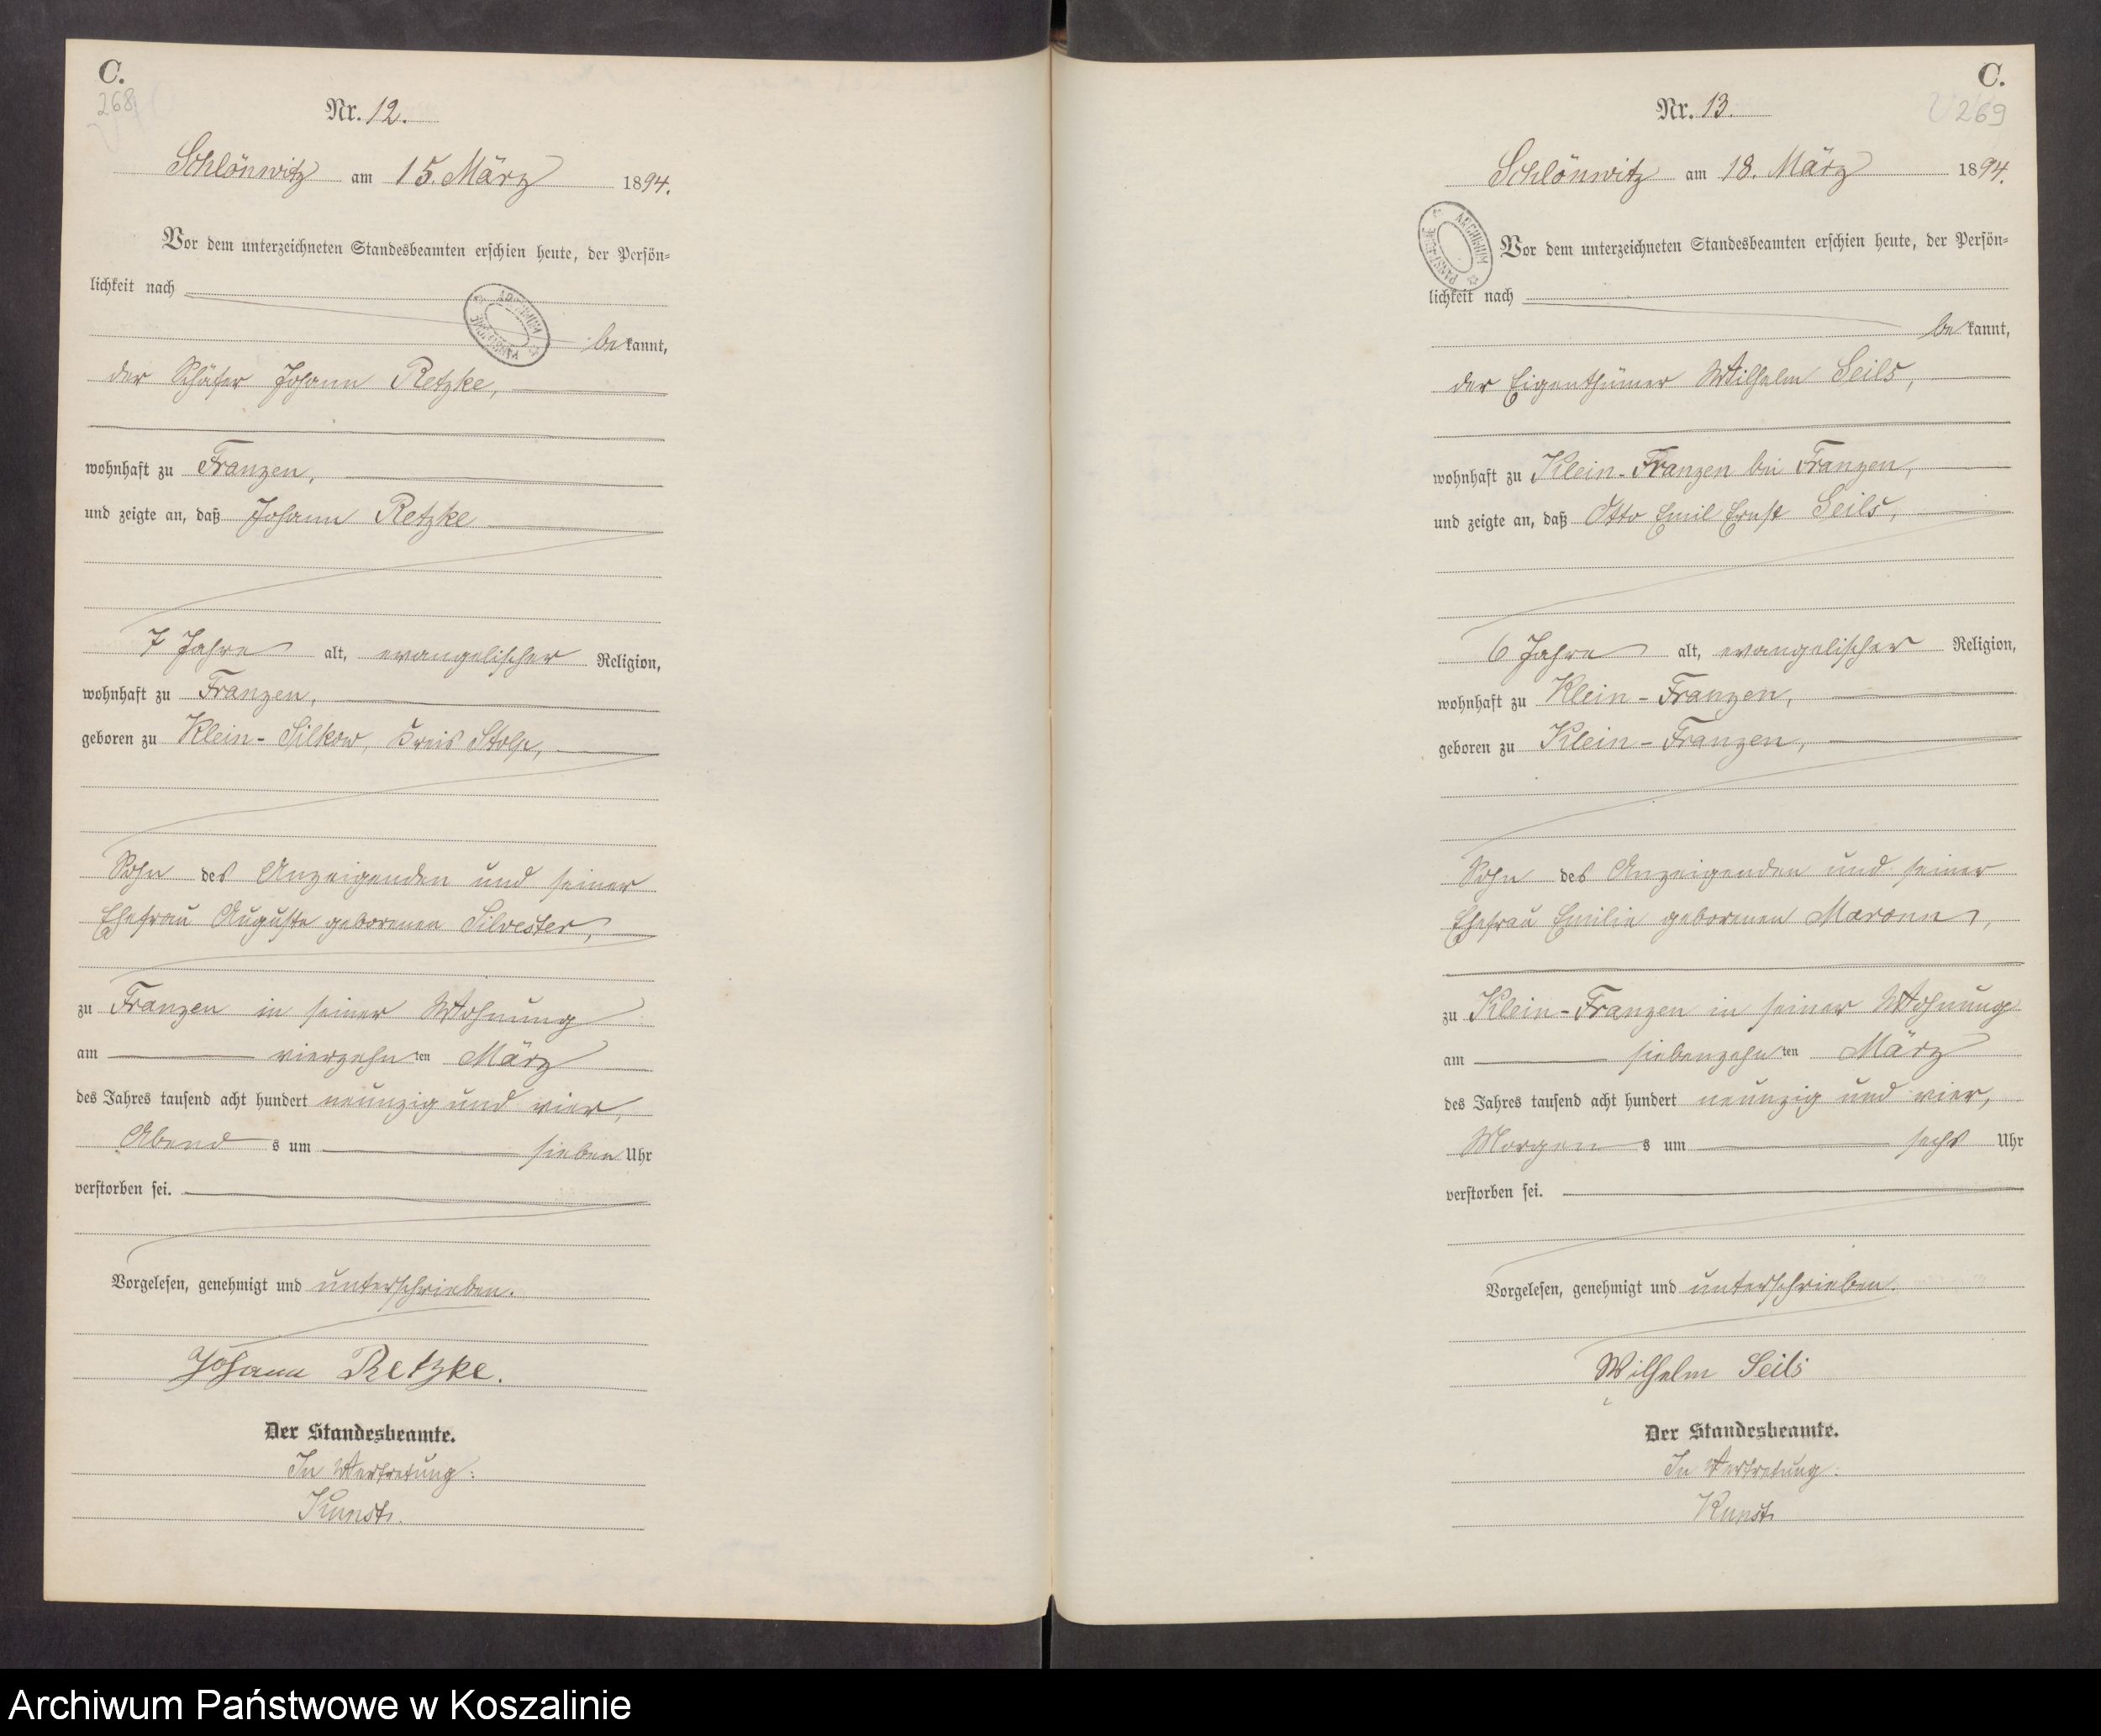 C.
268
Nr. 12.
Schlönwitz am 15. März 1894.
Vor dem unterzeichneten Standesbeamten erschien heute, der Persön-
lichkeit nach
bekannt,
der Schäfer Johann Retzke,
wohnhaft zu Franzen,
und zeigte an, daß Johann Retzke
7 Jahre alt, evangelischer Religion,
wohnhaft zu Franzen,
geboren zu Klein-Silkow, Kreis Stolp,
Sohn des Anzeigenden und seiner
Ehefrau Auguste geborenen Silvester,
zu Franzen in seiner Wohnung
am vierzehnten März
des Jahres tausend acht hundert neunzig und vier,
Abends um sieben Uhr
verstorben sei.
Vorgelesen, genehmigt und unterschrieben.
Johann Retzke.
Der Standesbeamte.
In Vertretung:
Kunst.
C.
269
Nr. 13.
Schlönwitz am 18. März 1894.
ARCHIWUM PAŃSTWOWE
Vor dem unterzeichneten Standesbeamten erschien heute, der Persön-
lichkeit nach
bekannt,
der Eigenthümer Wilhelm Seils,
wohnhaft zu Klein-Franzen bei Franzen,
und zeigte an, daß Otto Emil Ernst Seils,
6 Jahre alt, evangelischer Religion,
wohnhaft zu Klein-Franzen,
geboren zu Klein-Franzen,
Sohn des Anzeigenden und seiner
Ehefrau Emilie geborenen Maronn,
zu Klein-Franzen in seiner Wohnung
am siebenzehnten März
des Jahres tausend acht hundert neunzig und vier,
Morgens um sechs Uhr
verstorben sei.
Vorgelesen, genehmigt und unterschrieben.
Wilhelm Seils
Der Standesbeamte.
In Vertretung:
Kunst.
Archiwum Państwowe w Koszalinie